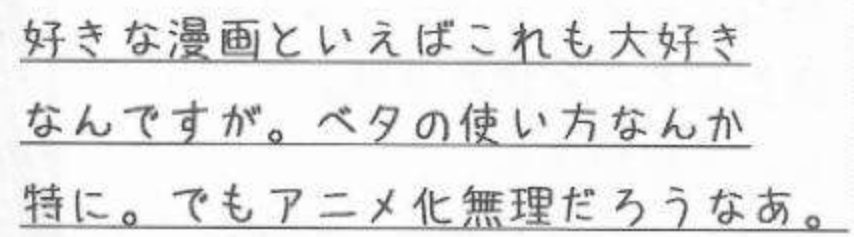 好きな漫画といえばこれも大好き
なんですが。ベタの使い方なんか
特に。でもアニメ化無理だろうなあ。